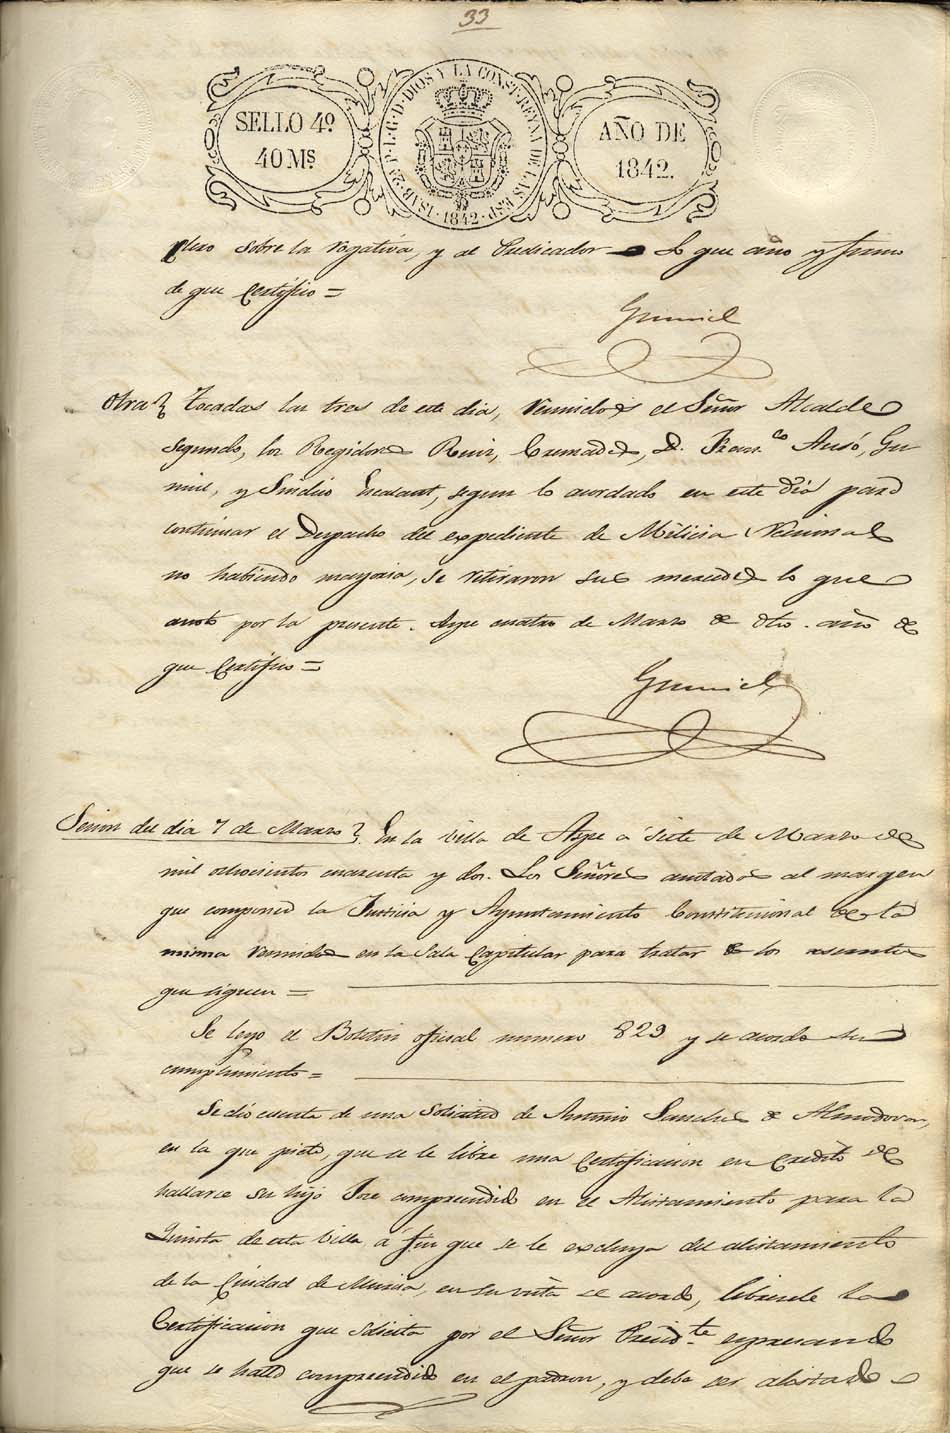 33
SELLO 4º
40 Ms
ISAB. 2ª P. L. G. D. DIOS Y LA CONST. REYNA DE LAS ESP. 1842
AÑO DE
1842.
sobre la rogativa, y al Predicador Lo que año y firmo
de que Certifico =
Gumiel
Otra } Tocadas las tres de este dia, reunidos el Señor Alcalde
segundo, los Regidores Ruiz, Cremades, D. Fran.co Ausó, Gu
miel, y Sindico segun lo acordado en este dia para
continuar el Despacho del expediente de Milicia Nacional
no habiendo mayoria, se retiraron sus mercedes lo que
anoto por la presente. Aspe cuatro de Marzo de dho. año de
que Certifico =
Gumiel
Sesion del dia 7 de Marzo } En la Villa de Aspe á siete de Marzo de
mil ochocientos cuarenta y dos. Los Señores anotados al margen
que componen la Justicia y Ayuntamiento Constitucional de la
misma reunidos en la Sala Capitular para tratar de los asuntos
que siguen =
Se leyo el Boletin oficial numero 829 y se acordo su
cumplimiento =
Se dió cuenta de una solicitud de Antonio Sanchez de Almodovar,
en la que pide, que se le libre una Certificacion en credito de
hallarse su hijo Jose comprendido en el Alistamiento para la
Quinta de esta Villa á fin que se le excluya del alistamiento
de la Ciudad de Murcia, en su vista se acordó, libresele la
Certificacion que solicita por el Señor Presid.te expresando
que se halla comprendido en el padron, y debe ser alistado